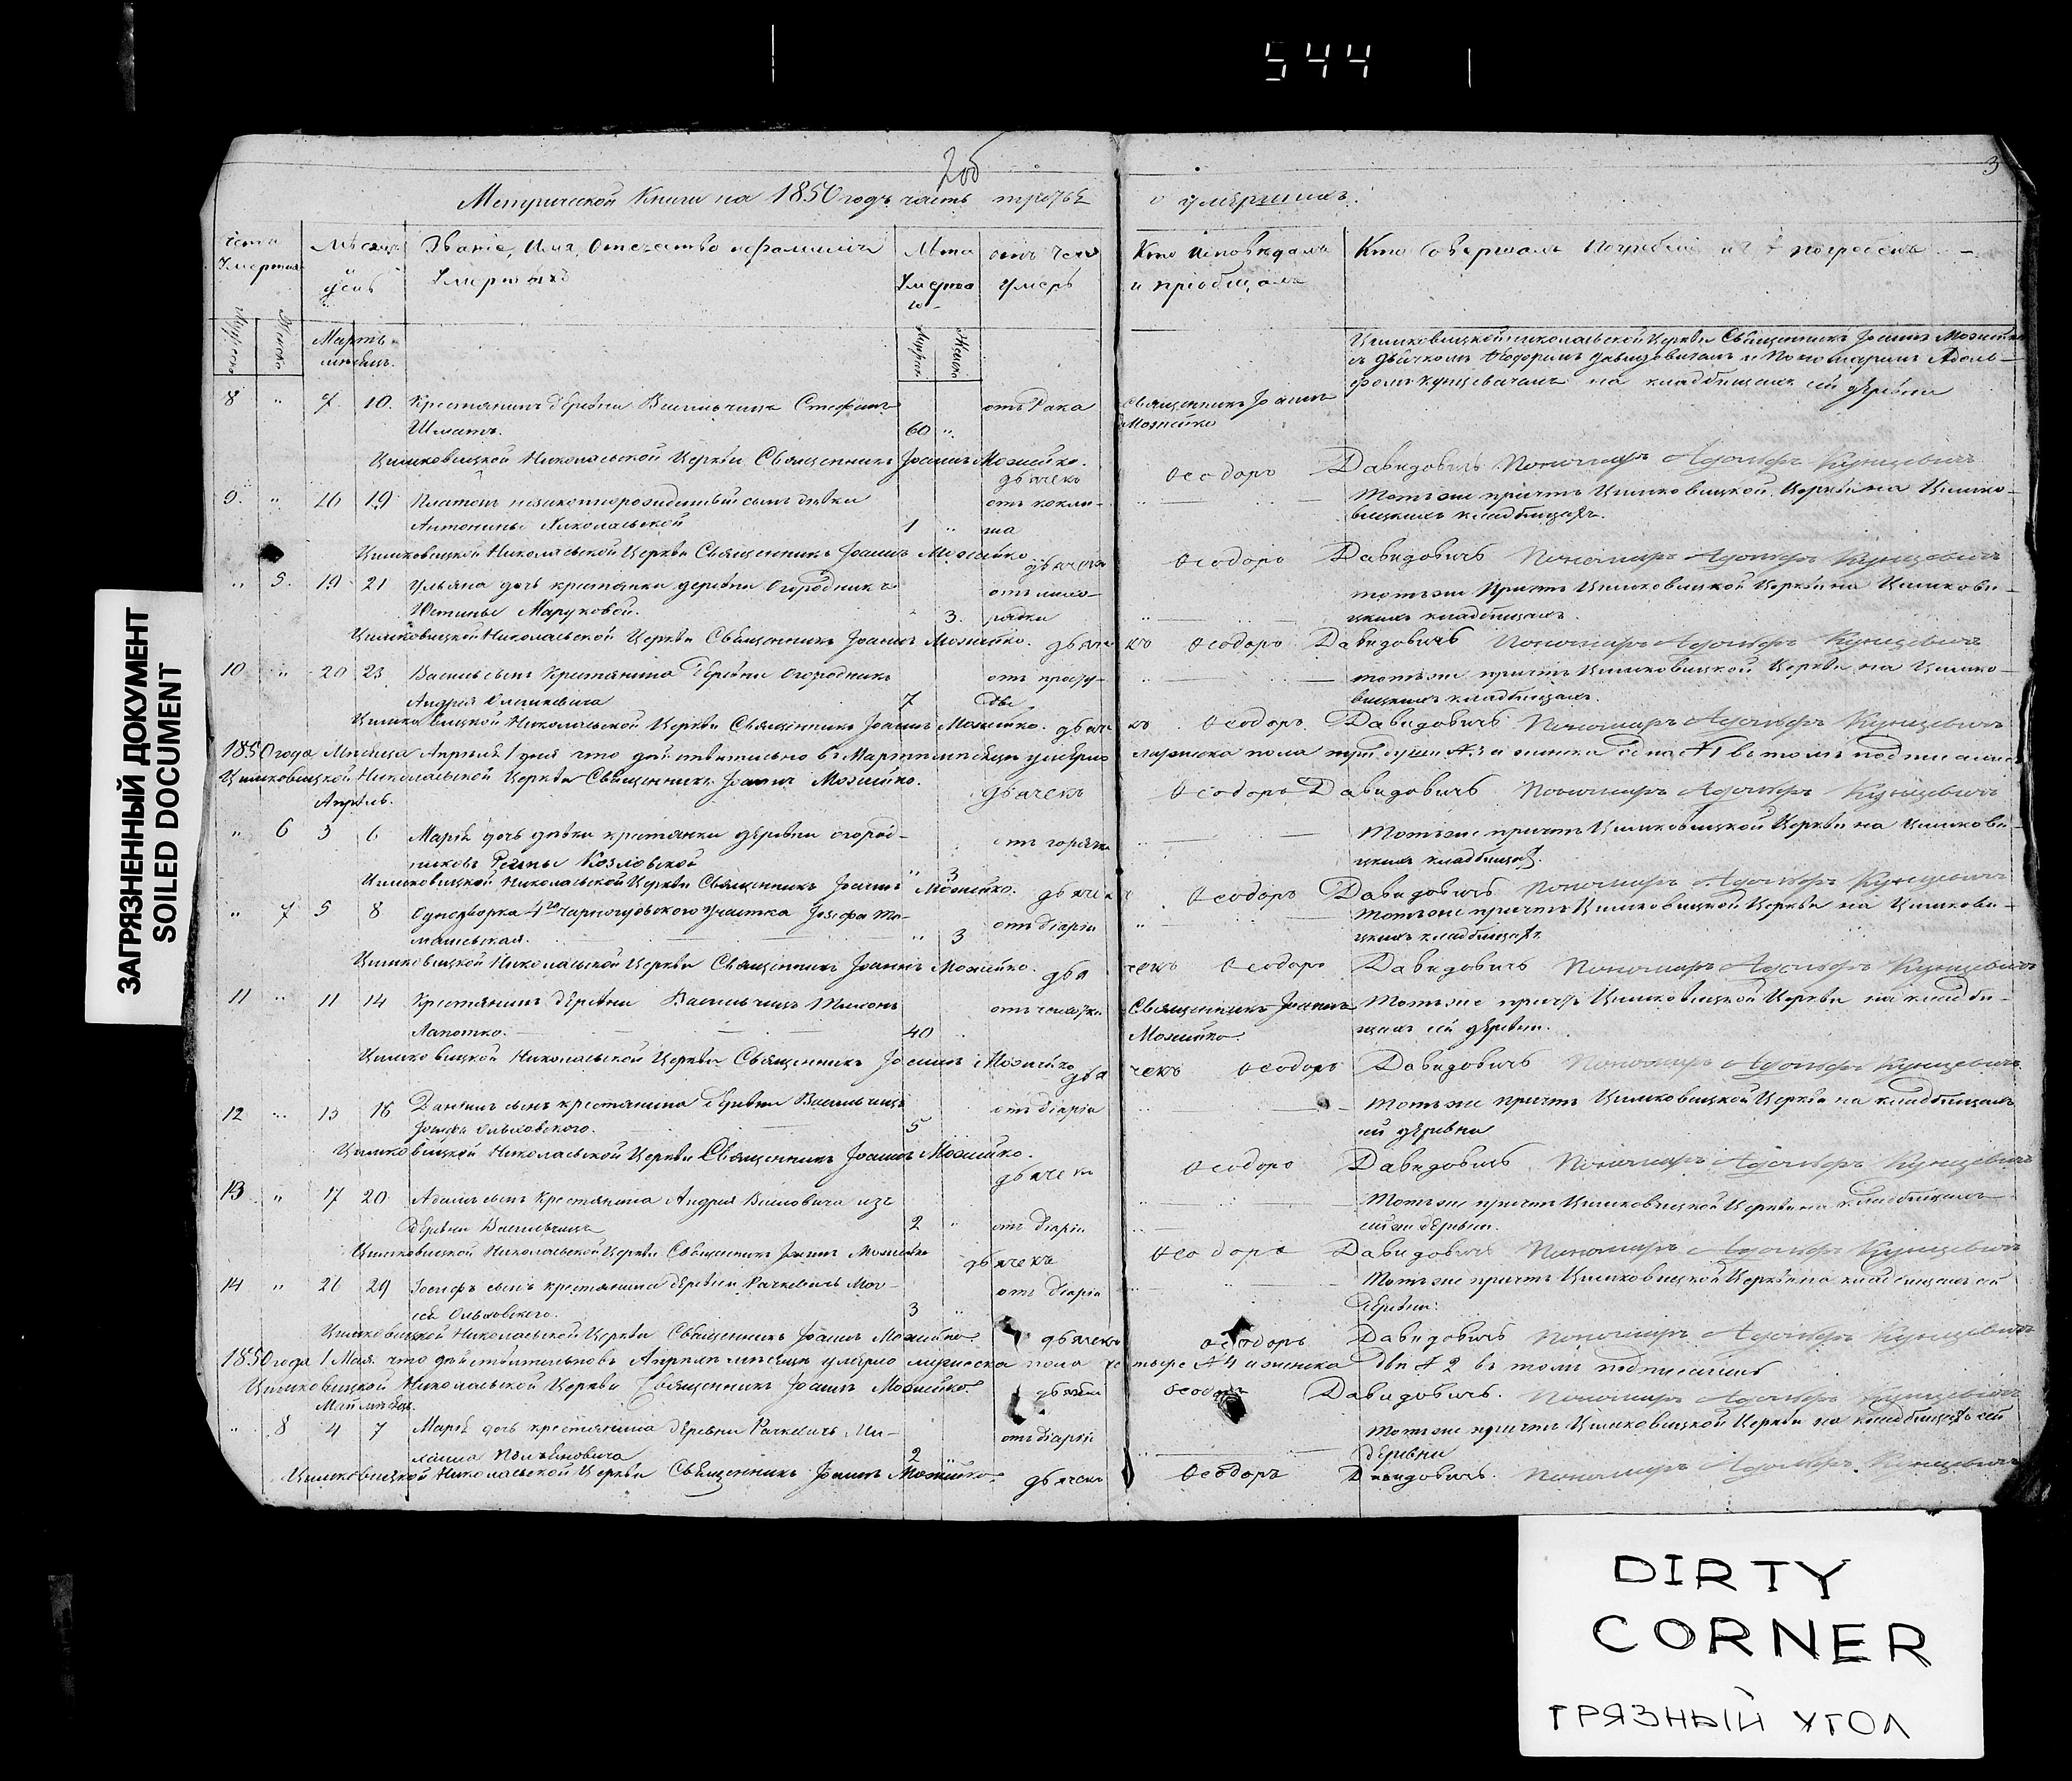 544
206
3
Метрической Книги на 1850 годъ часть третья о умершихъ.
Счетъ Умершихъ
Мѣсяцъ день
Званіе, Имя, Отечество и фамилія Умершихъ
Лѣта Умершаго
отъ чего умеръ
Кто исповѣдалъ и пріобщалъ
Кто совершалъ погребеніе и гдѣ погребены
Мужеска
Женска
Мартъ мѣсяцъ.
Мужеск.
Женска
Цимковицкой Николаевской Церкви Священникъ Іоаннъ Можейко
съ Дьячкомъ Ѳеодоромъ Давидовичемъ и Пономаремъ Адоль-
фомъ Кунцевичемъ на кладбищахъ сей деревни
8 " 7. 10. Крестьянинъ деревни Васильчицъ Стефанъ
60 " отъ рака Священникъ Іоаннъ Можейко
Цимковицкой Николаевской Церкви Священникъ Іоаннъ Можейко.
дьячекъ Ѳеодоръ Давидовичъ Пономарь Адольфъ Кунцевичъ
9. " 16 19 Платонъ незаконнорожденный сынъ дѣвки
Антонины 1 " отъ коклюша
Тотъ же причтъ Цимковицкой Церкви на Цимко-
вицкихъ кладбищахъ.
Цимковицкой Николаевской Церкви Священникъ Іоаннъ Можейко
дьячекъ Ѳеодоръ Давидовичъ Пономарь Адольфъ Кунцевичъ
" 5. 19 21 Ульяна дочь крестьянки деревни Огородникъ
Юстины Маруковой. " 3. отъ лихорадки
тотъ же Причтъ Цимковицкой Церкви на Цимкови-
цкихъ кладбищахъ.
Цимковицкой Николаевской Церкви Священникъ Іоаннъ Можейко. дьячекъ Ѳеодоръ Давидовичъ Пономарь Адольфъ Кунцевичъ
10 " 20 23 Василь сынъ Крестьянина Деревни Огородникъ
Андрея 7 отъ простуды
тотъ же причтъ Цимковицкой Церкви на Цимко-
вицкихъ кладбищахъ.
Цимковицкой Николаевской Церкви Священникъ Іоаннъ Можейко. дьячекъ Ѳеодоръ Давидовичъ Пономарь Адольфъ Кунцевичъ
1850 года Мѣсяца Апрѣля 1 дня что дѣйствительно въ Мартѣ мѣсяцѣ умерло мужеска пола три души №3 и женска одна №1 въ томъ подписались
Цимковицкой Николаевской Церкви Священникъ Іоаннъ Можейко.
дьячекъ Ѳеодоръ Давидовичъ Пономарь Адольфъ Кунцевичъ
Апрѣль.
" 6 3 6 Марія дочь дѣвки крестьянки деревни Огород-
никовъ Козловской " 3 отъ горячки
Тотъ же причтъ Цимковицкой Церкви на Цимкови-
цкихъ кладбищахъ.
Цимковицкой Николаевской Церкви Священникъ Іоаннъ Можейко. дьячекъ Ѳеодоръ Давидовичъ Пономарь Адольфъ Кунцевичъ
" 7 5 8 Однодворка 4го участка Іозефа То-
машевская. " 3 отъ діаріи
тотъ же причтъ Цимковицкой Церкви на Цимкови-
цкихъ кладбищахъ
Цимковицкой Николаевской Церкви Священникъ Іоаннъ Можейко. дьячекъ Ѳеодоръ Давидовичъ Пономарь Адольфъ Кунцевичъ
11 " 11 14 Крестьянинъ деревни Васильчицъ
Лапотко. 40 отъ чахотки Священникъ Іоаннъ Можейко.
Тотъ же причтъ Цимковицкой Церкви на кладби-
щахъ сей деревни.
Цимковицкой Николаевской Церкви Священникъ Іоаннъ Можейко дьячекъ Ѳеодоръ Давидовичъ Пономарь Адольфъ Кунцевичъ
12 " 13 16 Даніилъ сынъ крестьянина деревни Васильчицъ
Іозефа Ольховского. 5 отъ діаріи
Тотъ же причтъ Цимковицкой Церкви на кладбищахъ
сей деревни
Цимковицкой Николаевской Церкви Священникъ Іоаннъ Можейко.
дьячекъ Ѳеодоръ Давидовичъ Пономарь Адольфъ Кунцевичъ
13 " 17 20 Адамъ сынъ Крестьянина Андрея изъ
деревни Васильчицъ 2 " отъ діаріи
Тотъ же причтъ Цимковицкой Церкви на кладбищахъ
сей же деревни.
Цимковицкой Николаевской Церкви Священникъ Іоаннъ Можейко
дьячекъ Ѳеодоръ Давидовичъ Пономарь Адольфъ Кунцевичъ
14 " 26 29 Іосифъ сынъ крестьянина деревни Рачкевичъ Мои-
сея Ольховского. 3 " отъ діаріи
Тотъ же причтъ Цимковицкой Церкви на кладбищахъ сей
деревни.
Цимковицкой Николаевской Церкви Священникъ Іоаннъ Можейко дьячекъ Ѳеодоръ Давидовичъ Пономарь Адольфъ Кунцевичъ
1850 года 1 Мая что дѣйствительно въ Апрѣлѣ мѣсяцѣ умерло мужеска пола четыре №4 и женска двѣ №2 въ томъ подписались
Цимковицкой Николаевской Церкви Священникъ Іоаннъ Можейко. дьячекъ Ѳеодоръ Давидовичъ. Пономарь Адольфъ Кунцевичъ
Май мѣсяцъ.
" 8 4 7 Марія дочь крестьянина деревни Рачкевичъ
2 отъ діаріи
Тотъ же причтъ Цимковицкой Церкви на кладбищахъ сей
деревни
Цимковицкой Николаевской Церкви Священникъ Іоаннъ Можейко. дьячекъ Ѳеодоръ Давидовичъ. Пономарь Адольфъ Кунцевичъ
ЗАГРЯЗНЕННЫЙ ДОКУМЕНТ
SOILED DOCUMENT
DIRTY
CORNER
ГРЯЗНЫЙ УГОЛ